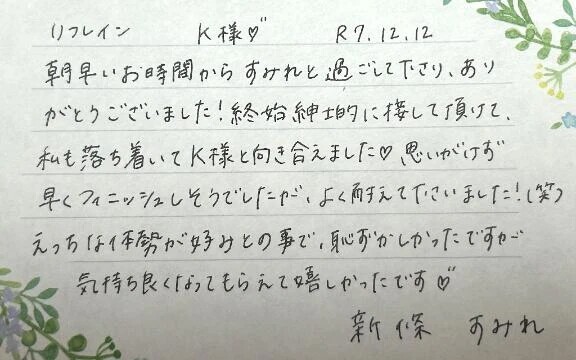 リフレイン K様♡ R7.12.12
朝早いお時間からすみれと過ごして下さり、あり
がとうございました!終始紳士的に接して頂けて、
私も落ち着いてK様と向き合えました♡思いがけず
早くフィニッシュしそうでしたが、よく耐えてくださいました!(笑)
えっちな体勢が好みとの事で、恥ずかしかったですが
気持ち良くなってもらえて嬉しかったです♡
新條 すみれ